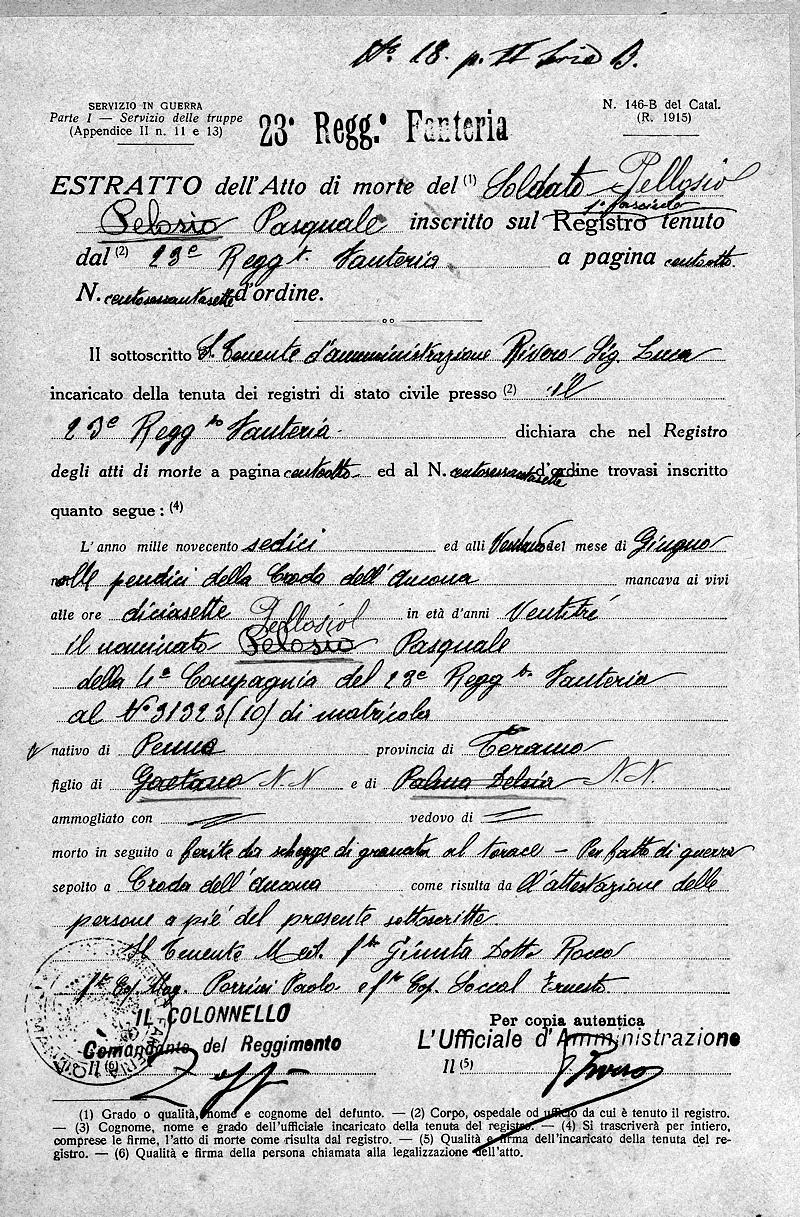 N° 18. p. II Serie B.
SERVIZIO IN GUERRA
Parte I — Servizio delle truppe
(Appendice II n. 11 e 13)
23° Regg.° Fanteria
N. 146-B del Catal.
(R. 1915)
ESTRATTO dell'Atto di morte del (1) Soldato Pellosiol
Pelosio Pasquale inscritto sul 1° fascicolo Registro tenuto
dal (2) 23° Regg.to Fanteria a pagina centootto
N. centosessantasette d'ordine.
Il sottoscritto S. Tenente d'amministrazione Rivero Sig. Luca
incaricato della tenuta dei registri di stato civile presso (2) il
23° Regg.to Fanteria dichiara che nel Registro
degli atti di morte a pagina centootto ed al N. centosessantasette d'ordine trovasi inscritto
quanto segue : (4)
L'anno mille novecento sedici ed alli del mese di Giugno
nelle pendici della Croda dell'Ancona mancava ai vivi
alle ore diciasette in età d'anni Ventitré
Pellosiol
il nominato Pelosio Pasquale
della 4ª Compagnia del 23° Regg.to Fanteria
al N° 31323 (10) di matricola
nativo di Penna provincia di Teramo
figlio di Gaetano N.N e di Palma Delsia N.N.
ammogliato con = vedovo di =
morto in seguito a ferite da schegge di granata al torace – Per fatto di guerra
sepolto a Croda dell'Ancona come risulta da dell'attestazione delle
persone a pie' del presente sottoscritte.
Il Tenente Med. f.to Giunta Dott. Rocco
f.to Cap. Mag. Porrini Paolo e f.to Cap. Soccal Ernesto.
IL COLONNELLO
Comandante del Reggimento
Il (6)
Per copia autentica
L'Ufficiale d'Amministrazione
Il (5)
Rivero
(1) Grado o qualità, nome e cognome del defunto. — (2) Corpo, ospedale od ufficio da cui è tenuto il registro.
— (3) Cognome, nome e grado dell'ufficiale incaricato della tenuta del registro. — (4) Si trascriverà per intiero,
comprese le firme, l'atto di morte come risulta dal registro. — (5) Qualità e firma dell'incaricato della tenuta del re-
gistro. — (6) Qualità e firma della persona chiamata alla legalizzazione dell'atto.